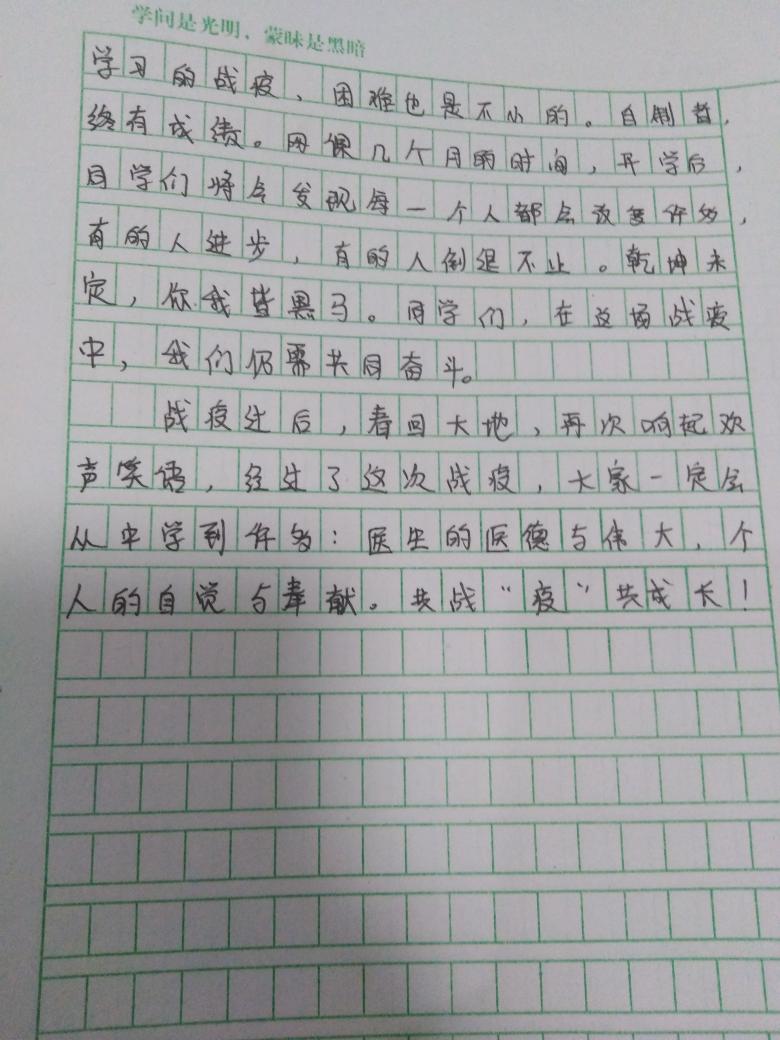 学问是光明，蒙昧是黑暗
学习的战疫、困难也是不小的。自制者，
终有成绩。网课几个月的时间，开学后，
同学们将会发现每一个人都会改变许多，
有的人进步，有的人倒退不止。乾坤未
定，你我皆黑马。同学们，在这场战疫
中，我们仍需共同奋斗。
战疫过后，春回大地，再次响起欢
声笑语，经过了这次战疫，大家一定会
从中学到许多：医生的医德与伟大，个
人的自觉与奉献。共战“疫”共成长！